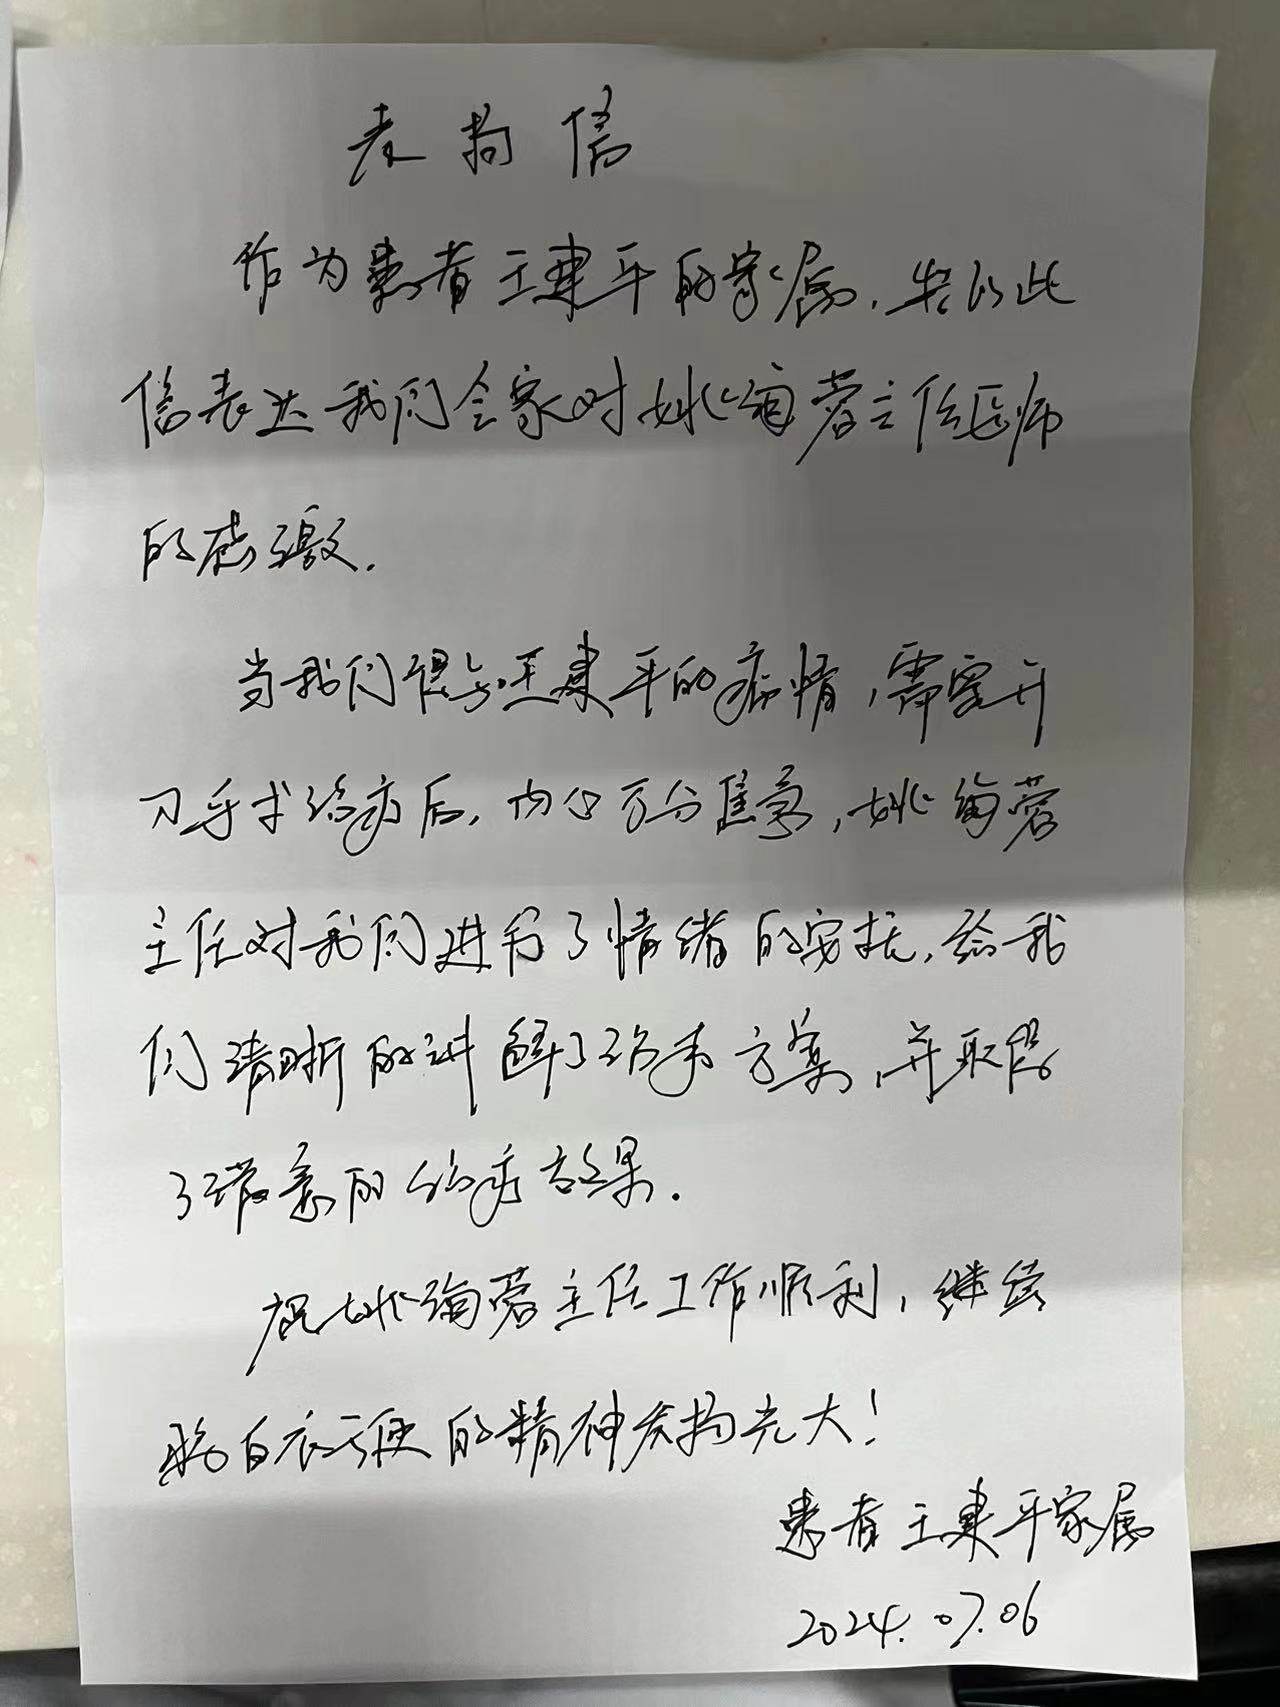 表扬信
作为患者王建平的家属，特以此
信表达我们全家对姚海蓉主任医师
的感激．
当我们得知王建平的病情，需要开
刀手术治疗后，内心万分焦急，姚海蓉
主任对我们进行了情绪的安抚，给我
们清晰的讲解了治疗方案，并取得
了满意的治疗效果．
祝姚海蓉主任工作顺利，继续
将白衣天使的精神发扬光大！
患者王建平家属
2024.07.06